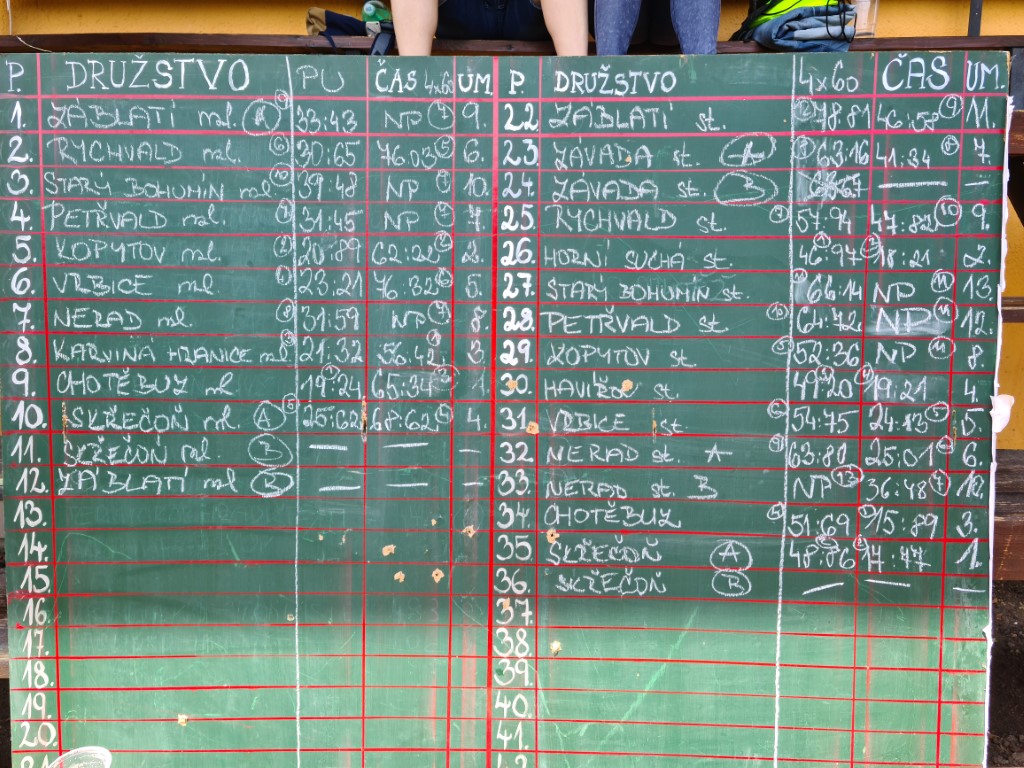 P. DRUŽSTVO PU ČAS 4x60 UM.
1. ZÁBLATÍ ml. A 9 33:43 NP 7 9.
2. RYCHVALD ml. 6 30:65 76.03 5 6.
3. STARÝ BOHUMÍN ml 10 39:48 NP 10.
4. PETŘVALD ml. 7 31:45 NP 7 7.
5. KOPYTOV ml. 2 20:89 62:22 2.
6. VRBICE ml 23:21 76:32 5.
7. NERAD ml. 8 31:59 NP 7 8.
8. KARVINÁ HRANICE ml 21:32 56:42 3.
9. CHOTĚBUZ ml 19:24 65:34 1.
10. SKŘEČOŇ ml. A 5 25:62 68:62 4.
11. SKŘEČOŇ ml. B — — —
12. ZÁBLATÍ ml B — — —
13.
14.
15.
16.
17.
18.
19.
20.
21
P. DRUŽSTVO 4x60 ČAS UM.
22. ZÁBLATÍ st. 78.81 46:58 9 11.
23. ZÁVADA st. A 63:16 41:34 8 7.
24. ZÁVADA st. B — —
25. RYCHVALD st. 57:94 47:82 10 9.
26. HORNÍ SUCHÁ st. 46:97 18:21 2.
27. STARÝ BOHUMÍN st. 66:14 NP 11 13.
28. PETŘVALD st 10 64:72 NP 11 12.
29. KOPYTOV st 52:36 NP 11 8.
30. HAVÍŘOV st. 49:20 19:21 4.
31. VRBICE st. 6 54:75 24:13 5 5.
32 NERAD st. A 63:80 25:01 6.
33. NERAD st. B NP 13 36:48 7 10.
34. CHOTĚBUZ 51:69 15:89 3.
35 SKŘEČOŇ A 48:86 14:77 1.
36. SKŘEČOŇ B — — —
37.
38.
39.
40.
41.
42